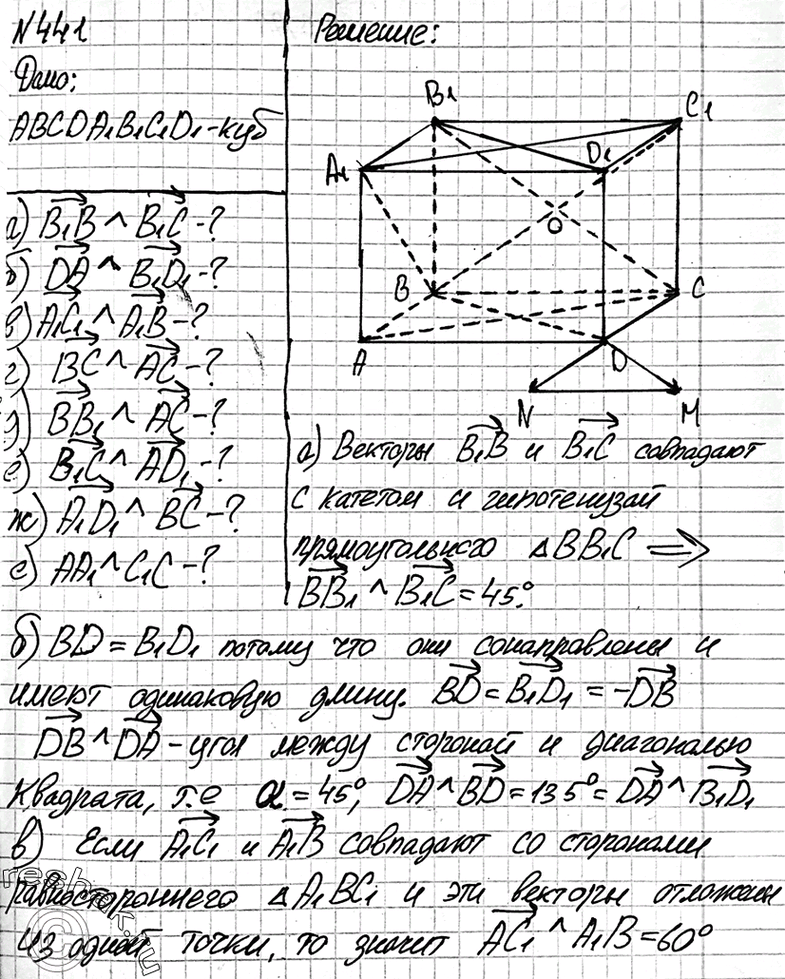 №441
Дано:
ABCDA1B1C1D1-куб
а) B1B ^ B1C-?
б) DA ^ B1D1-?
в) A1C1 ^ A1B-?
г) BC ^ AC-?
д) BB1 ^ AC-?
е) B1C ^ AD1-?
ж) A1D1 ^ BC-?
е) AA1 ^ C1C-?
Решение:
B1
C1
A1
D1
O
B
C
A
D
N
M
а) Векторы B1B и B1C совпадают
с катетом и гипотенузай
прямоугольного △BB1C ⟹
BB1 ^ B1C = 45°.
б) BD = B1D1 потому что они сонаправлены и
имеют одинаковую длину. BD = B1D1 = -DB
DB ^ DA - угол между стороной и диагональю
квадрата, т.е α = 45°, DA ^ BD = 135° = DA ^ B1D1
в) Если A1C1 и A1B совпадают со сторонами
равностороннего △A1BC1 и эти векторы отложен
из одной точки, то значит AC1 ^ A1B = 60°
reshak.ru